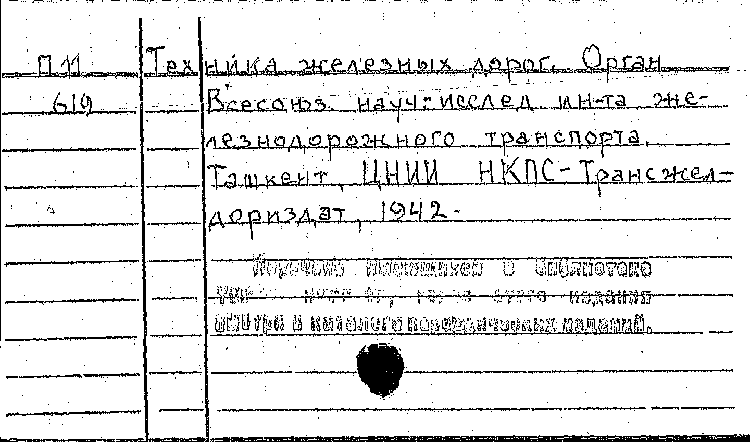 П 11 Техника железных дорог. Орган
619 Всесоюз. науч.-исслед ин-та же-
лезнодорожного транспорта.
Ташкент, ЦНИИ НКПС-Трансжел-
дориздат, 1942-
имеющихся в библиотеке
этого издания
смотри в каталоге периодических изданий.